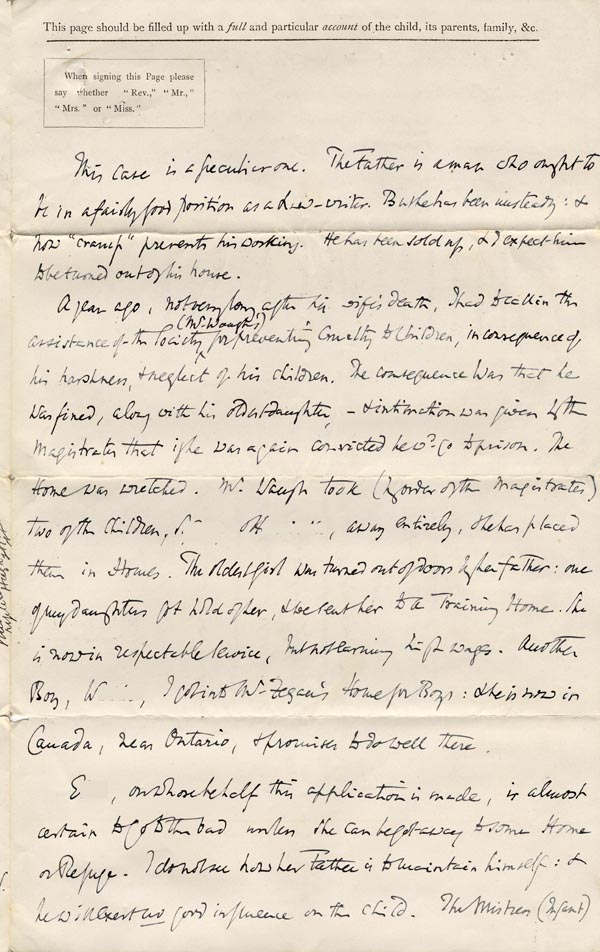 This page should be filled up with a full and particular account of the child, its parents, family, &c.
When signing this Page please
say whether "Rev.," "Mr.,"
"Mrs." or "Miss."
This case is a peculiar one. The Father is a man who ought to
be in a fairly good position as a Law-writer. But he has been unsteady: &
now "cramp" prevents his working. He has been sold up, & I expect him
to be turned out of his house.
A year ago, not very long after his wife's death, I had to call in the
(Mr Waugh's)
assistance of the Society for preventing Cruelty to Children, in consequence of
his harshness, & neglect of his children. The consequence was that he
was fined, along with his oldest daughter, - & intimation was given by the
Magistrates that if he was again convicted he wd. go to prison. The
Home was wretched. Mr. Waugh took (by order of the Magistrates)
two of the children, away entirely, & he has placed
them in Homes. The oldest girl was turned out of doors by her father: one
of my daughters got hold of her, & we sent her to a Training Home. She
is now in respectable Service, but not earning high wages. Another
Boy, W I got into Mr. Fegan's Home for Boys: & he is now in
Canada, near Ontario, & promises to do well there.
E , on whose behalf this application is made, is almost
certain to go to the bad unless she can be got away to some Home
or Refuge. I do not see how her Father is to maintain himself: &
he will exert no good influence on the child. The Mistress (Infant)